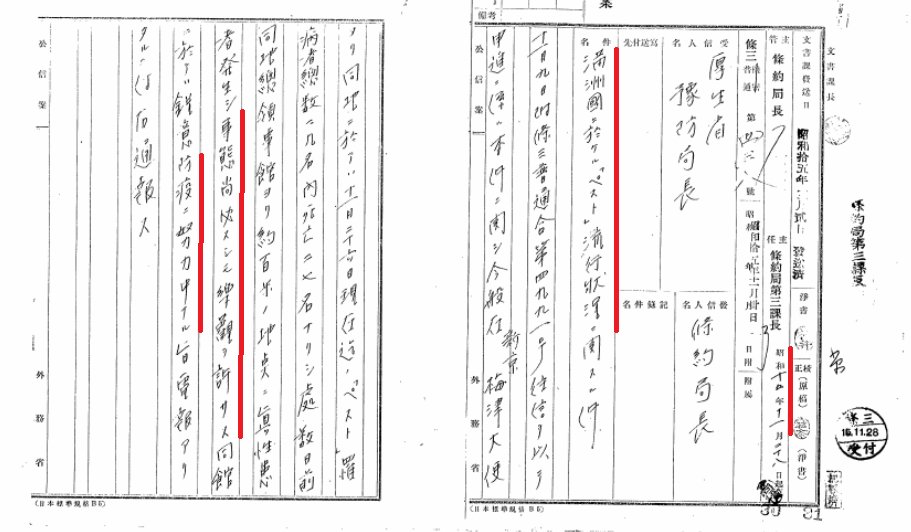 文書課長
文書課發送日
昭和拾五年
發送濟
淨書
校正
(原稿)
(淨書)
條約局第三課受
主管
條約局長
主任
條約局第三課長
昭和十五年十一月二十八日起
條三普通
第四三八號
昭和拾五年十一月卅日
日附
附屬
受信人名
厚生省
豫防局長
發信人名
條約局長
寫送付先
記錄件名
件名
滿洲國ニ於ケル「ペスト」流行狀況ニ關スル件
十一月九日附條三普通合第四九九一号往信ヲ以テ
申進ノ
本件ニ關シ今般在新京梅津大使
公信案
外務省
(日本標準規格B5)
條三
15.11.28
受付
備考
ヨリ同地ニ於テハ十一月二十六日現在迄ノ「ペスト」罹
病者總數二八名內死亡二七名ナリシ處數日前
同地總領事館ヨリ約百米ノ地点ニ眞性患
者發生シ事態尚必スシモ樂觀ヲ許サス同館
ニ於テハ鋭意防疫ニ努力中ナル旨電報アリ
タルニ付右通報ス
公信案
外務省
(日本標準規格B5)